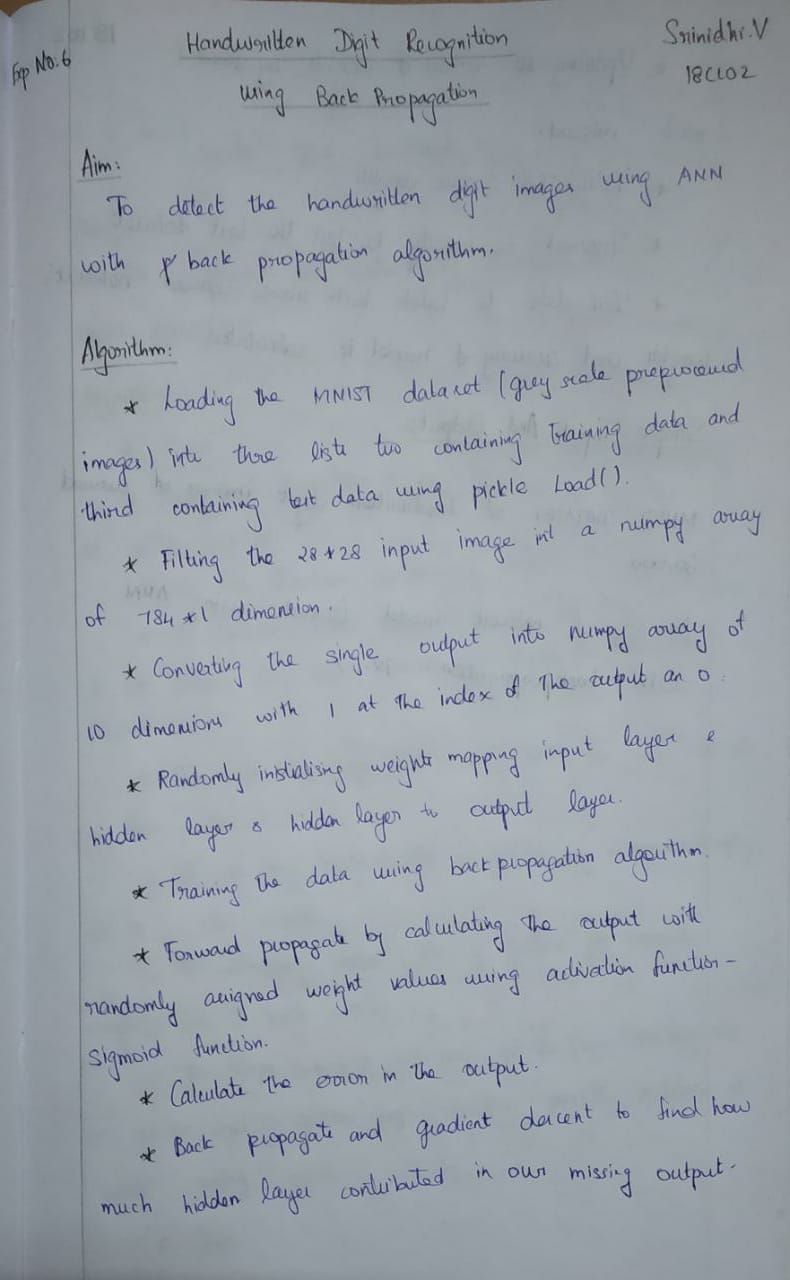 Exp No.6
Handwritten Digit Recognition
using Back Propagation
Srinidhi.V
18CL02
Aim:
To detect the handwritten digit images using ANN
with back propagation algorithm.
Algorithm:
* Loading the MNIST dataset (grey scale preprocessed
images) into three lists two containing Training data and
third containing test data using pickle Load().
* Fitting the 28*28 input image int a numpy array
of 784*1 dimension.
* Converting the single output into numpy array of
10 dimensions with 1 at the index of The output an 0.
* Randomly initialising weights mapping input layer &
hidden layer & hidden layer to output layer.
* Training The data using back propagation algorithm.
* Forward propagate by calculating The output with
randomly assigned weight values using activation function -
Sigmoid function.
* Calculate the error in the output.
* Back propagate and gradient descent to find how
much hidden layer contributed in our missing output.